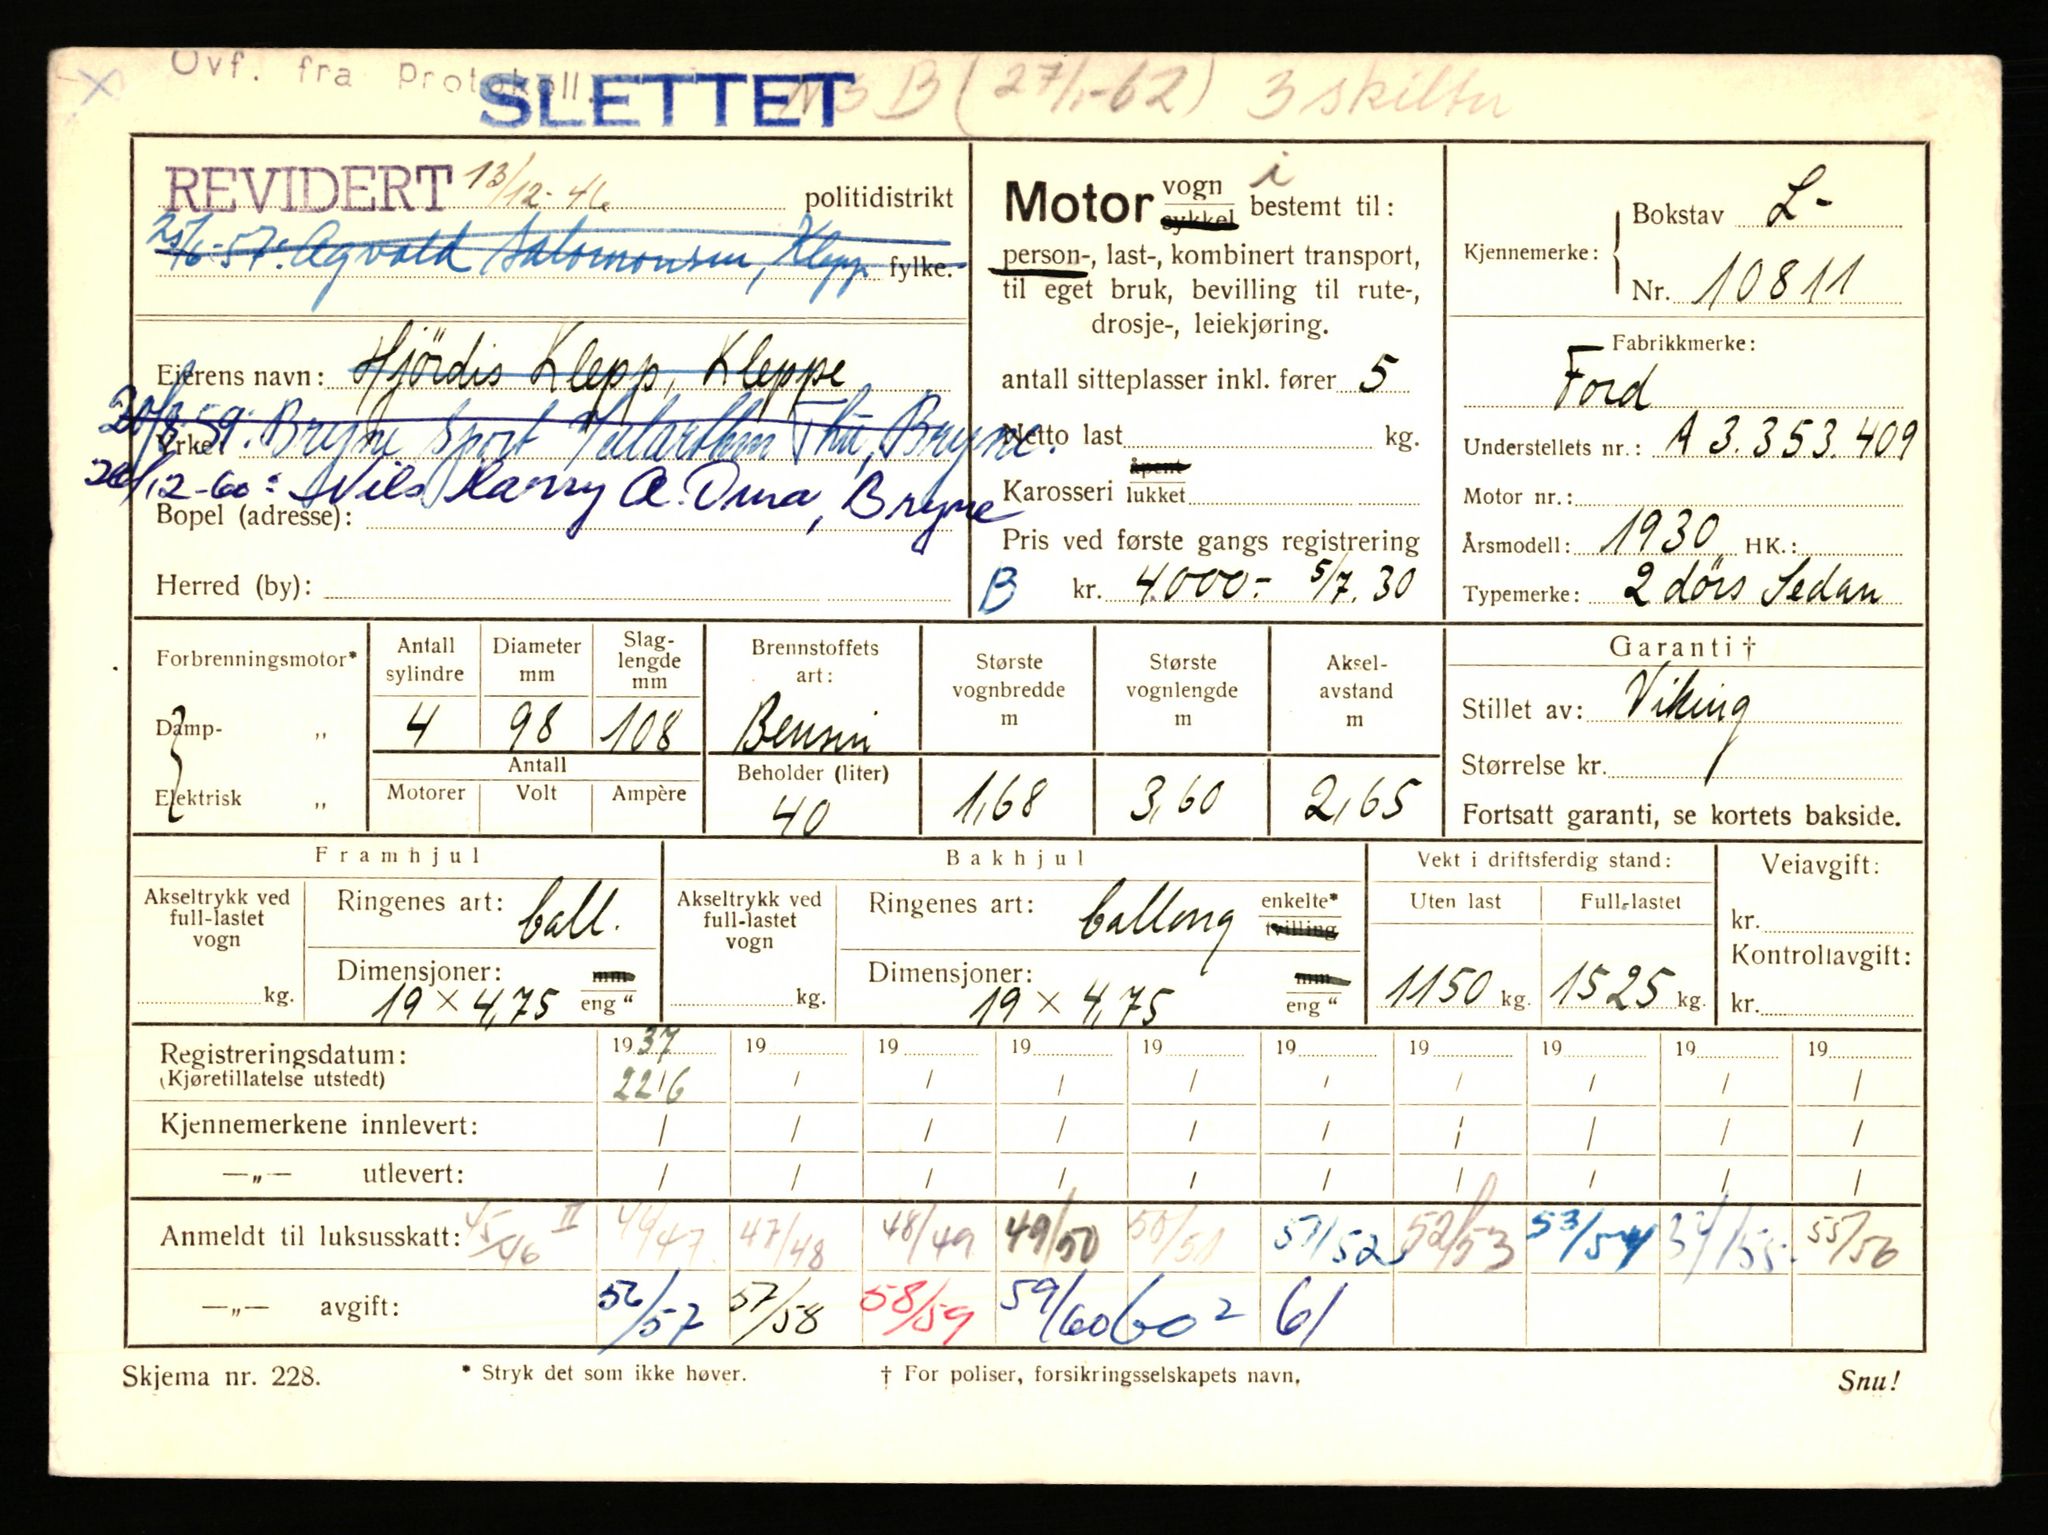 Ovf. fra Protokoll.
SLETTET
B (27/1-62) 3 skilter
REVIDERT 13/12-46 politidistrikt
25/6-57: Agvald Salomonsen, Klepp fylke.
Eierens navn: Hjördis Klepp, Kleppe
Yrke:
59: Bryne Sport Thu, Bryne.
/12-60: Nils Harry A. Bryne
Bopel (adresse):
Herred (by):
Motor vogn i
sykkel bestemt til:
person-, last-, kombinert transport,
til eget bruk, bevilling til rute-,
drosje-, leiekjøring.
antall sitteplasser inkl. fører 5
Netto last kg.
Karosseri åpent
lukket
Pris ved første gangs registrering
B kr. 4.000.- 5/7.30
Kjennemerke: Bokstav L-
Nr. 10811
Fabrikkmerke:
Ford
Understellets nr.: A 3.353.409
Motor nr.:
Årsmodell: 1930 HK.:
Typemerke: 2 dørs Sedan
Forbrenningsmotor*
Damp- „
Elektrisk „
Antall sylindre
4
Diameter mm
98
Slag-
lengde
mm
108
Antall
Motorer Volt Ampère
Brennstoffets
art:
Bensin
Beholder (liter)
40
Største
vognbredde
m
1,68
Største
vognlengde
m
3,60
Aksel-
avstand
m
2,65
Garanti †
Stillet av: Viking
Størrelse kr.
Fortsatt garanti, se kortets bakside.
Framhjul
Akseltrykk ved
full-lastet
vogn
kg.
Ringenes art: ball.
Dimensjoner: mm
19 × 4,75 eng "
Bakhjul
Akseltrykk ved
full-lastet
vogn
kg.
Ringenes art: ballong enkelte*
tvilling
Dimensjoner: mm
19 × 4,75 eng "
Vekt i driftsferdig stand:
Uten last Full-lastet
1150 kg. 1525 kg.
Veiavgift:
kr.
Kontrollavgift:
kr.
Registreringsdatum: 1937 19 19 19 19 19 19 19 19 19
(Kjøretillatelse utstedt) 22/6 / / / / / / / / /
Kjennemerkene innlevert: / / / / / / / / / /
—„— utlevert: / / / / / / / / / /
Anmeldt til luksusskatt: 45/46 II 46/47 47/48 48/49 49/50 50/51 51/52 52/53 53/54 54/55 55/56
—„— avgift: 56/57 57/58 58/59 59/60 60² 61
Skjema nr. 228. * Stryk det som ikke høver. † For poliser, forsikringsselskapets navn. Snu!